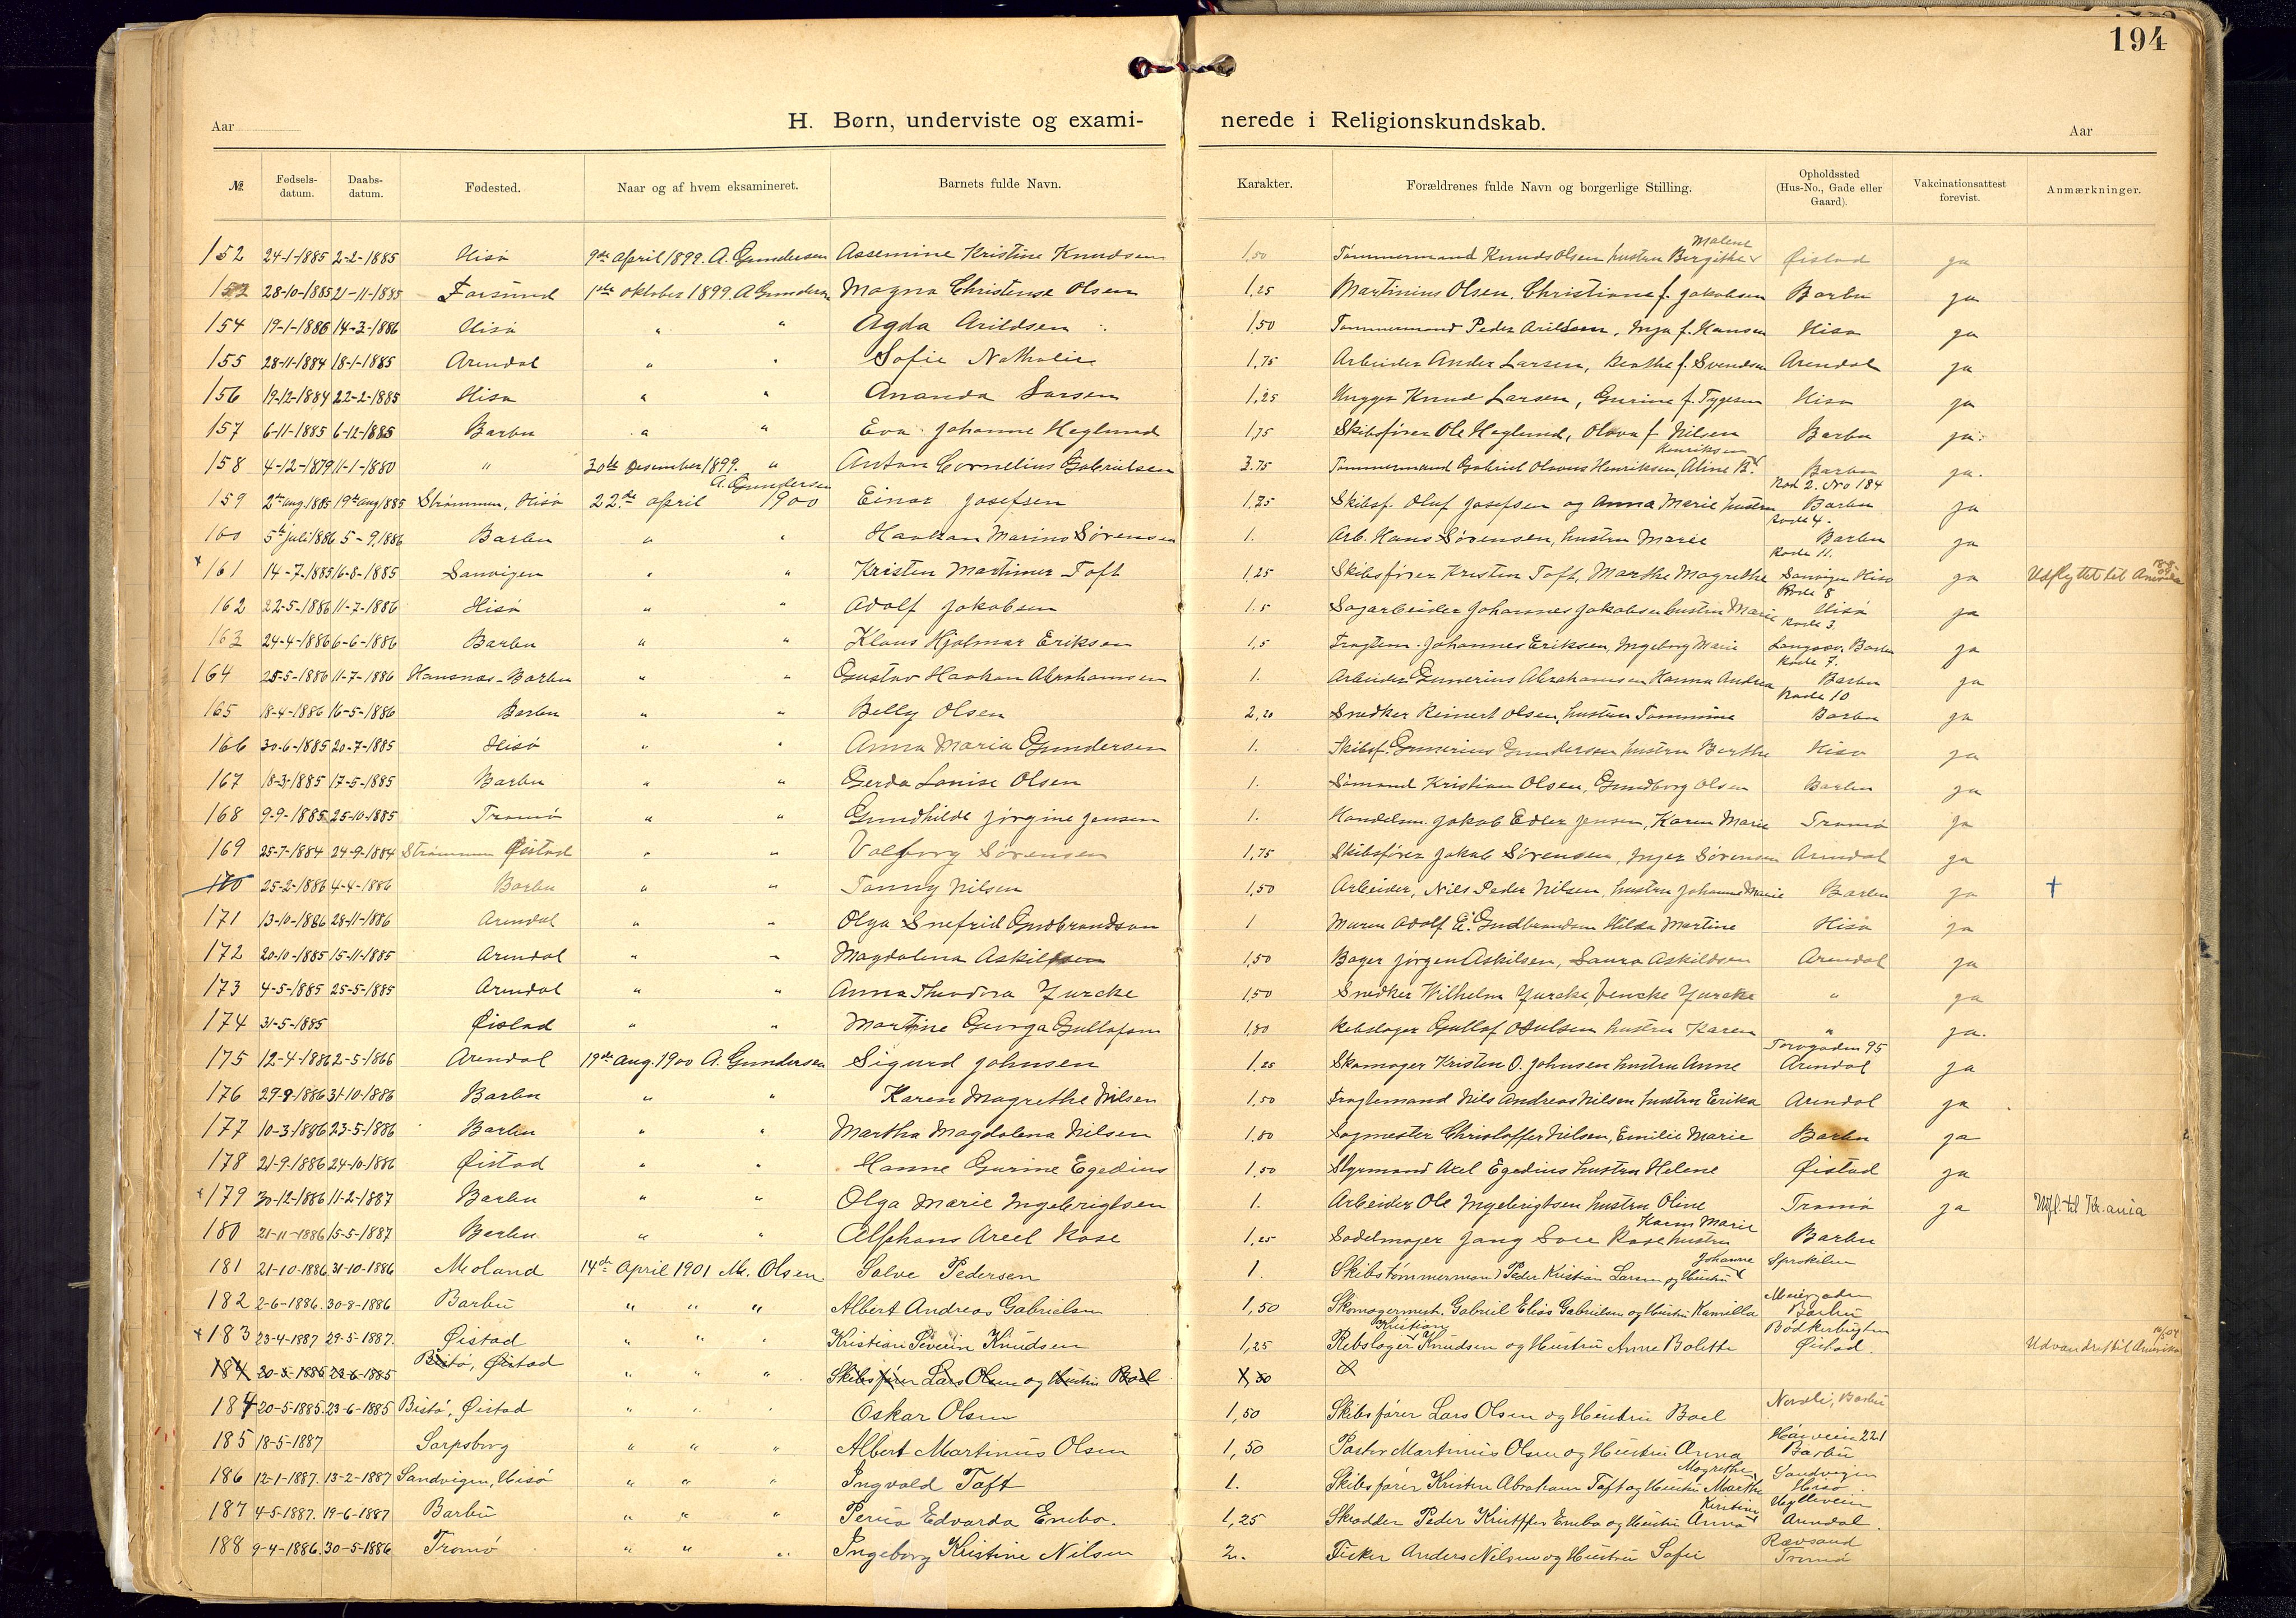 194
Aar
H. Børn, underviste og exami- nerede i Religionskundskab.
Aar
№ Fødsels-datum. Daabs-datum. Fødested. Naar og af hvem eksamineret. Barnets fulde Navn. Karakter. Forældrenes fulde Navn og borgerlige Stilling. Opholdssted (Hus-No., Gade eller Gaard). Vakcinationsattest forevist. Anmærkninger.
Malene
152 24-1-1885 2-2-1885 Hisø 9de april 1899. A. Gundersen Assemine Kristine Knudsen 1,50 Tømmermand Knuds Olsen hustru Birgithe Øistad ja
153 28-10-1885 21-11-1885 Farsund 1ste oktober 1899 A Gundersen Magna Christense Olsen 1,25 Martinius Olsen, Christiane f. Jakobsen Barbu ja
154 19-1-1886 14-3-1886 Hisø " " Agda Arildsen 1,50 Tømmermand Peder Arildsen, Inga f. Hansen Hisø ja
155 28-11-1884 18-1-1885 Arendal " " Sofie Nathalie 1,75 Arbeider Ander Larsen, Berthe f. Svendsen Arendal ja
156 19-12-1884 22-2-1885 Hisø " " Ananda Larsen 1,25 Hugger Knud Larsen, Gurine f. Tygesen Hisø ja
157 6-11-1885 6-12-1885 Barbu " " Eva Johanne Heglund 1,75 Skibsfører Ole Heglund, Olava f Nilsen Barbu ja
Henriksen
158 4-12-1879 11-1-1880 " 30te Desember 1899. " Anton Cornelius Gabrielsen 3.75 Tømmermand Gabriel Olavus Henriksen, Aline B. Barbu ja.
A. Gundersen Rod 2. No 184
159 2de aug 1885 19de aug 1885 Strømmen, Hisø 22.de april 1900 Einar Josefsen 1,25 Skibsf. Oluf Josefsen og Anna Marie hustru Barbu ja
Rode 4.
160 5te juli 1886 5-9-1886 Barbu " " Haakon Marino Sørensen 1. Arb. Hans Sørensen, hustru Marie Barbu ja
Rode 11.
x 161 14-7-1885 16-8-1885 Sanvigen " " Kristen Martinus Toft 1,25 Skibsfører Kristen Toft, Marthe Magrethe Sanvigen Hisø ja Udflyttet til Amerika
Rode 8
162 22-5-1886 11-7-1886 Hisø " " Adolf Jakobsen 1.5 Sagarbeider Johannes Jakobsen hustru Marie Hisø ja
Rode 3.
163 24-4-1886 6-6-1886 Barbu " " Klaus Hjalmar Eriksen 1,5 Fragtem. Johannes Eriksen, Ingeborg Marie Langsæ. Barbu ja
Rode 7.
164 25-5-1886 11-7-1886 Hansnæs-Barbu " " Gustav Haakon Abrahamsen 1. Arbeider Gunerius Abrahamsen Hanna Andrea Barbu ja
Rode 10
165 18-4-1886 16-5-1886 Barbu " " Belly Olsen 2,20 Snedker Reinert Olsen, hustru Tommine Barbu ja
166 30-6-1885 20-7-1885 Hisø " " Anna Maria Gundersen 1. Skibsf. Gunerius Gundersen hustru Berthe Hisø ja
167 18-3-1885 17-5-1885 Barbu " " Gerda Louise Olsen 1. Sømand Kristian Olsen, Gundborg Olsen Barbu ja
168 9-9-1885 25-10-1885 Tromø " " Gundhilde Jørgine Jensen 1. Handelsm. Jakob Edler Jensen, Karen Marie Tromø ja
169 25-7-1884 24-9-1884 Strømmen Øistad " " Valborg Sørensen 1,75 Skibsfører Jakob Sørensen, Inger Sørensen Arendal ja
170 25-2-1886 4-4-1886 Barbu " " Tonny Nilsen 1,50 Arbeider, Nils Peder Nilsen, hustru Johanne Marie Barbu ja †
171 13-10-1886 28-11-1886 Arendal " " Olga Snefrid Gudbrandsen 1 Murer Adolf E. Gudbrandsen Hilda Martine Hisø ja
172 20-10-1885 15-11-1885 Arendal " " Magdalena Askildsen 1,50 Bager Jørgen Askilsen, Laura Askildsen Arendal ja
173 4-5-1885 25-5-1885 Arendal " " Anna Theodora Jurcke 1,50 Snedker Wilhelm Jurcke, Vencke Jurcke " ja
174 31-5-1885 Øistad " " Martine Georga Gullofsen 1,80 Rebslager Gullof Osulsen hustru Karen " ja.
Torvgaden 95
175 12-4-1886 2-5-1866 Arendal 19de aug. 1900 A. Gundersen Sigurd Johnsen 1,25 Skomager Kristen O. Johnsen hustru Anne Arendal ja
176 29-9-1886 31-10-1886 Barbu " " Karen Magrethe Nilsen 1,50 Fragtemand Nils Andreas Nilsen hustru Erika Arendal ja
177 10-3-1886 23-5-1886 Barbu " " Martha Magdalena Nilsen 1,80 Sagmester Christoffer Nilsen, Emilie Marie Barbu ja
178 21-9-1886 24-10-1886 Øistad " " Hanne Gurine Egedius 1,50 Styrmand Axel Egedius hustru Helene Øistad ja
x 179 30-12-1886 11-2-1887 Barbu " " Olga Marie Ingebrigtsen 1. Arbeider Ole Ingebrigtsen hustru Oline Tromø ja Udfl. til Kr.ania
Karen Marie
180 21-11-1886 15-5-1887 Barbu " " Alphons Areel Rose 1,25 Sadelmager Jang Soee Rose hustru Barbu
Johanne
181 21-10-1886 31-10-1886 Moland 14de April 1901 M. Olsen Salve Pedersen 1. Skibstømmermand Peder Kristian Larsen og Hustru Sprokilen
Meiergaden
182 2-6-1886. 30-8-1886 Barbu " " " Albert Andreas Gabrielsen 1,50 Skomagermest. Gabriel Elias Gabrielsen og Hustru Kamilla Barbu
Kristian Bødkerbugten
x 183 23-4-1887 29-5-1887. Øistad " " " Kristian Severin Knudsen 1,25 Rebslager Knudsen og Hustru Anne Bolette Øistad. Udvandret til Amerika
184 20-5-1885 23-6-1885 Bistø, Øistad " " " Skibsfører Lars Olsen og Hustru Boel 1,50
184 20-5-1885. 23-6-1885 Bistø, Øistad " " " Oskar Olsen 1,50 Skibsfører Lars Olsen og Hustru Boel Nerdli, Barbu
Haaveien 221
185 18-5-1887 Sarpsborg " " " Albert Martinius Olsen 1,50 Pastor Martinius Olsen og Hustru Anna Barbu
Magrethe Sandvigen
186 12-1-1887. 13-2-1887 Sandvigen, Hisø " " " Ingvald Toft 1. Skibsfører Kristen Abraham Toft og Hustru Marthe Hisø.
Kristine Hylleveien
187 4-5-1887. 19-6-1887 Barbu " " " Edvarda Enebo. 1,25 Skrædder Peder Kristoffer Enebo og Hustru Anna Arendal.
Rævsand
188 9-4-1886. 30-5-1886 Tromø " " " Ingeborg Kristine Nilsen 2. Fisker Anders Nilsen og Hustru Sofie Tromø